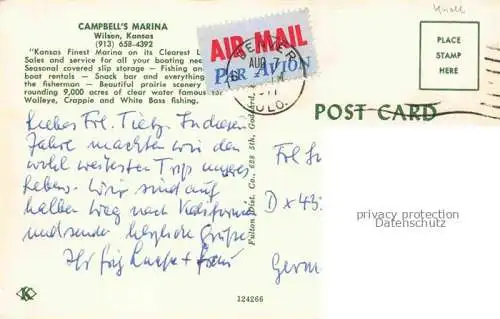 CAMPBELL'S MARINA
Wilson, Kansas
(913) 658-4392
"Kansas Finest Marina on its Clearest L
Sales and service for all your boating need
Seasonal covered slip storage — Fishing an
boat rentals — Snack bar and everything
the fisherman — Beautiful prairie scenery
rounding 9,000 acres of clear water famous for
Walleye, Crappie and White Bass fishing.
AIR MAIL
PAR AVION
DENVER
AUG 7
COLO.
PLACE
STAMP
HERE
POST CARD
Liebes Frl. Tietz. In diesem
Jahre machten wir den
wohl weitesten Trip unseres
Lebens. Wir sind auf
halben Weg nach Kalifornien
und senden herzliche Grüße
Ihr + Frau
Frl
D x 43
Germ
Fulton Dist. Co., 628 5th,
privacy protection
Datenschutz
K
124266